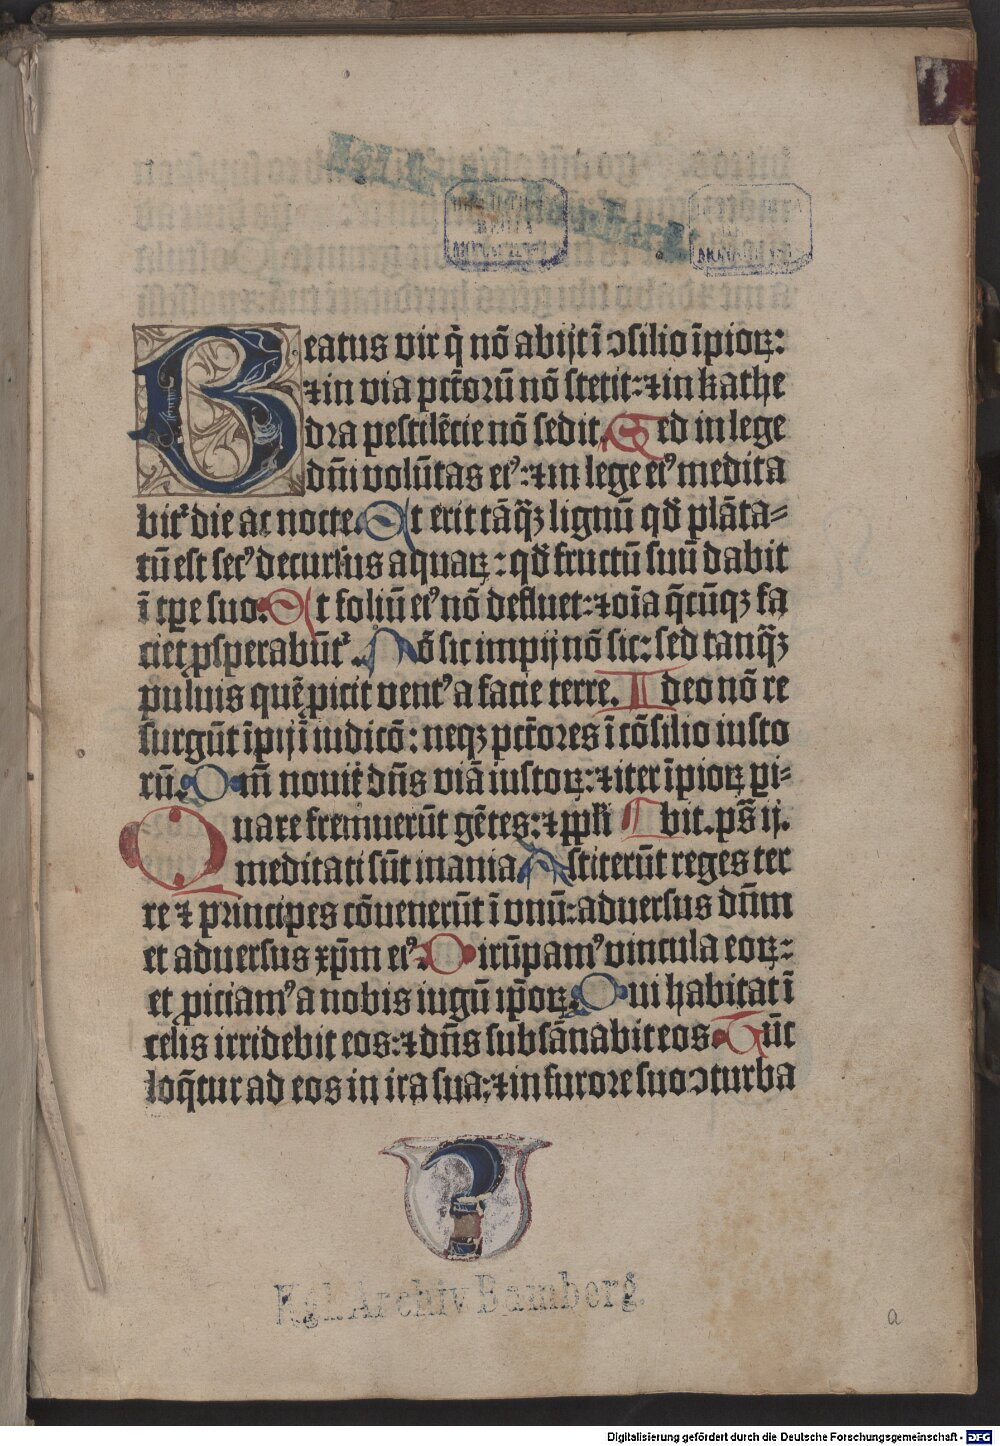 Beatus vir q̄ nō abijt ī ↄsilio īpioꝝ:
⁊ in via pctōrū nō stetit: ⁊ in kathe
dra pestilēcie nō sedit. Sed in lege
dn̄i volūtas eiꝰ: ⁊ in lege eiꝰ medita
bit᷑ die ac nocte. Et erit tāq̄ꝫ lignū qd̄ plāta⸗
tū est secꝰ decursus aquaꝝ: qd̄ fructū suū dabit
ī tꝑe suo. Et foliū eiꝰ nō defluet: ⁊ oīa q̄cūqꝫ fa
ciet ꝓsperabūt᷑. Nō sic impij nō sic: sed tanq̄ꝫ
puluis quē ꝓicit ventꝰ a facie terre. Ideo nō re
surgūt īpij ī iudicō: neqꝫ pctōres ī cōsilio iusto
rū. Qm̄ nouit dn̄s viā iustoꝝ: ⁊ iter īpioꝝ ꝑi⸗
Quare fremuerūt gētes: ⁊ pp̄li bit. ps̄ ij.
meditati sūt inania. Astiterūt reges ter
re ⁊ principes cōuenerūt ī vnū: aduersus dn̄m
et aduersus xp̄m eiꝰ. Dirūpamꝰ vincula eoꝝ:
et ꝓiciamꝰ a nobis iugū ip̄oꝝ. Qui habitat ī
celis irridebit eos: ⁊ dn̄s subsānabit eos. Tūc
loq̄tur ad eos in ira sua: ⁊ in furore suo ↄturba
Kgl. Archiv Bamberg.
a
Digitalisierung gefördert durch die Deutsche Forschungsgemeinschaft - DFG